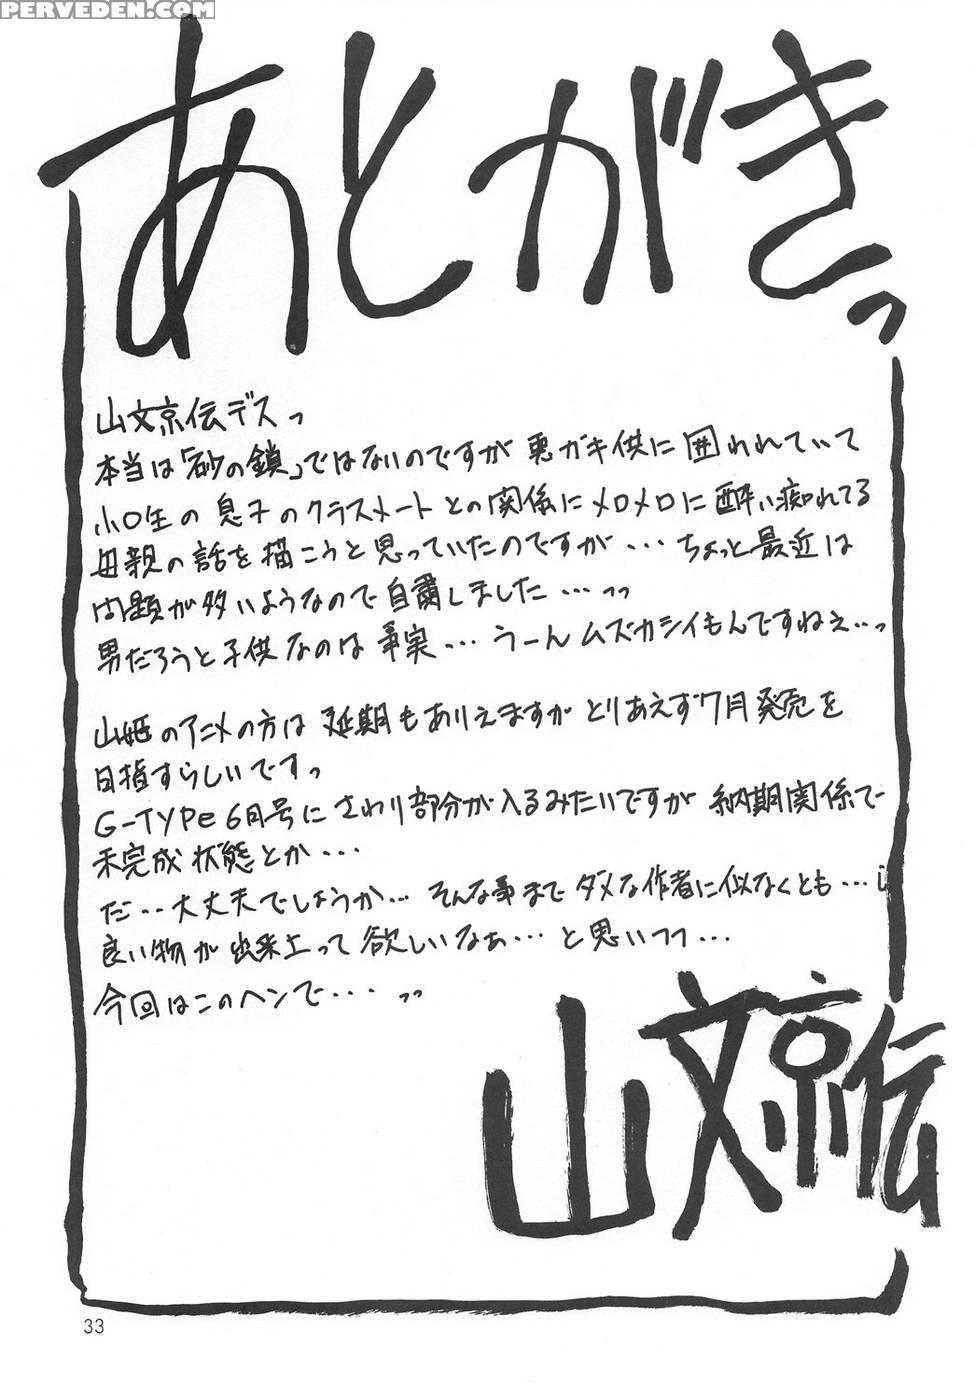 PERVEDEN.COM
あとがきっ
山文京伝デスっ
本当は「砂の鎖」ではないのですが悪ガキ供に囲われていて
小○生の息子のクラスメートとの関係にメロメロに酔い痴れてる
母親の話を描こうと思っていたのですが・・・ちょっと最近は
問題が多いようなので自粛しました・・・っっ
男だろうと子供なのは事実・・・うーんムズカシイもんですねぇ・・っ
山姫のアニメの方は延期もありえますがとりあえず7月発売を
目指すらしいですっ
G-TYPe6月号にさわり部分が入るみたいですが納期関係で
未完成状態とか・・・
だ・・大丈夫でしょうか・・・そんな事までダメな作者に似なくとも・・・
良い物が出来上って欲しいなぁ・・・と思いつつ・・・
今回はこのヘンで・・・っっ
山文京伝
33